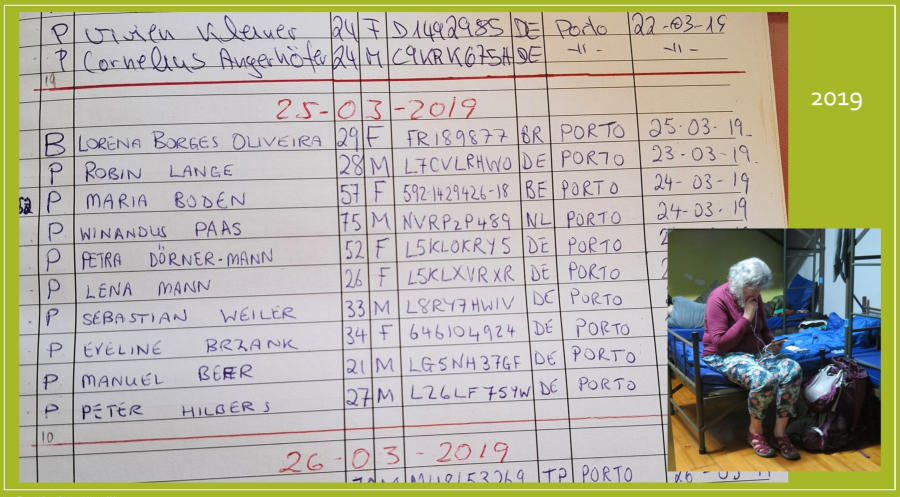 P Vivien Klever 24 F D1492985 DE Porto 22-03-19
P Cornelius Angerhöfer 24 M C9KRK675H DE -11- -11-
19
25-03-2019
B LORENA BORGES OLIVEIRA 29 F FR189877 BR PORTO 25.03.19
P ROBIN LANGE 28 M L7CVLRHW0 DE PORTO 23-03-19
P MARIA BODEN 57 F 592-1429426-18 BE PORTO 24-03-19
P WINANDUS PAAS 75 M NVRP2P489 NL PORTO 24-03-19
P PETRA DÖRNER-MANN 52 F L5KLOKRY5 DE PORTO
P LENA MANN 26 F L5KLXVRXR DE PORTO
P SEBASTIAN WEILER 33 M L8RY7HWIV DE PORTO
P EVELINE BRZANK 34 F 646104924 DE PORTO
P MANUEL BEER 21 M LG5NH37GF DE PORTO
P PETER HILBERS 27 M LZ6LF75YW DE PORTO
10
26-03-2019
PORTO
2019